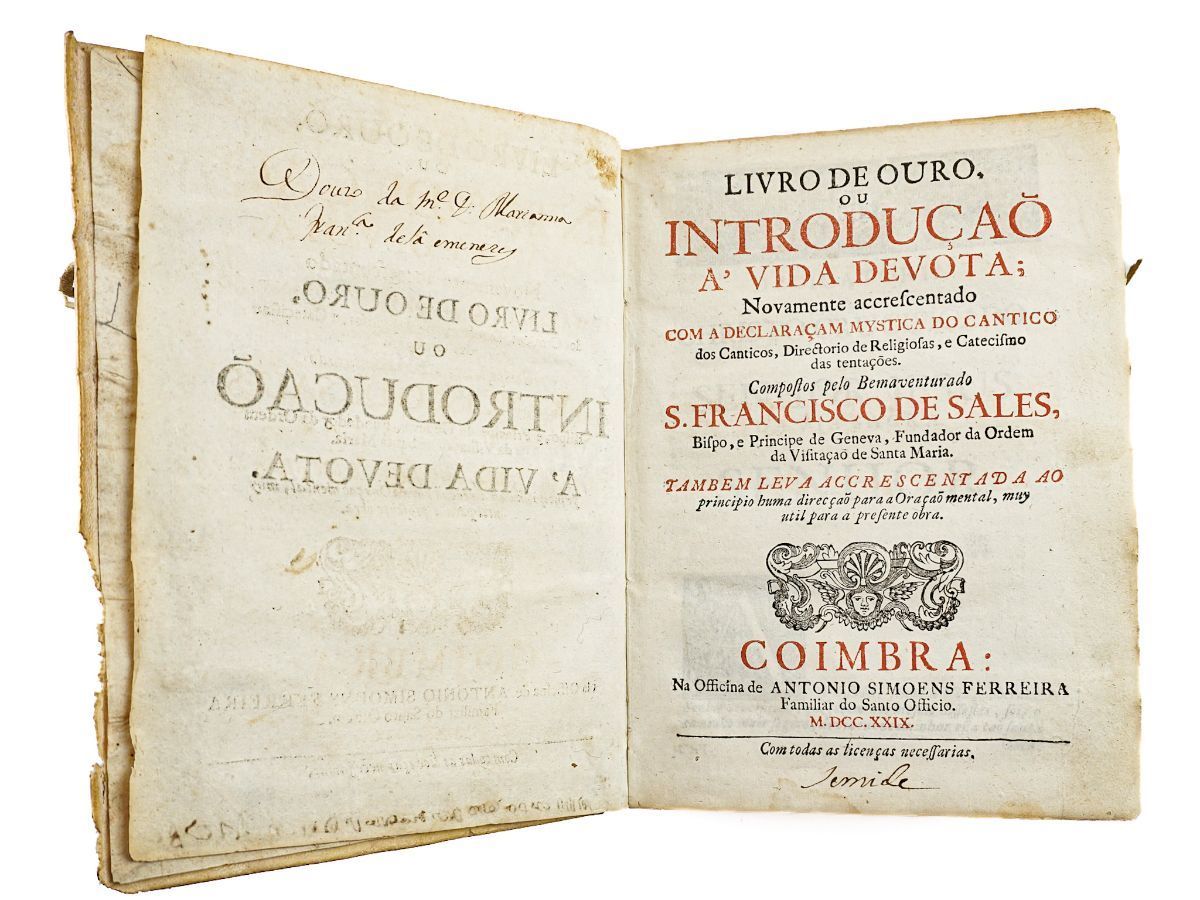 Douro da M.e D. Marianna
Fran.ca de Sâ e menezes
LIVRO DE OURO,
OU
INTRODUÇAÕ
A' VIDA DEVOTA,
LIVRO DE OURO,
OU
INTRODUÇAÕ
A' VIDA DEVOTA;
Novamente accreſcentado
COM A DECLARAÇAM MYSTICA DO CANTICO
dos Canticos, Directorio de Religioſas, e Cateciſmo
das tentações.
Compoſtos pelo Bemaventurado
S. FRANCISCO DE SALES,
Biſpo, e Principe de Geneva, Fundador da Ordem
da Viſitaçaõ de Santa Maria.
TAMBEM LEVA ACCRESCENTADA AO
principio huma direcçaõ para a Oraçaõ mental, muy
util para a preſente obra.
COIMBRA:
Na Officina de ANTONIO SIMOENS FERREIRA
Familiar do Santo Officio.
M. DCC. XXIX.
Com todas as licenças neceſſarias.
Semide